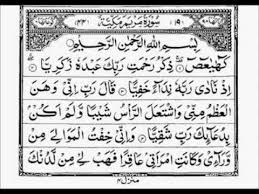 سورة مريم مكية
بسم الله الرحمن الرحيم
كهيعص ذكر رحمت ربك عبده زكريا
إذ نادى ربه نداء خفيا قال رب إني وهن
العظم مني واشتعل الرأس شيبا ولم أكن
بدعائك رب شقيا وإني خفت الموالي من
وراءي وكانت امرأتي عاقرا فهب لي من لدنك